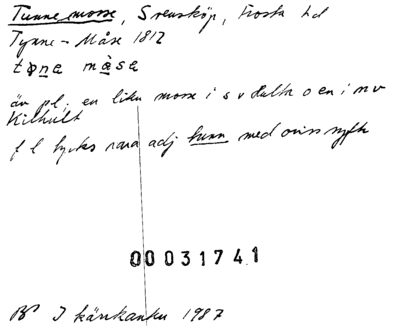 Tunnemosse, Svensköp, Frosta hd
Tynne - Måse 1812
tønɐ måsa
äv pl. en liten mosse i s v delen o en i n v
Kilhult
f l tycks vara adj tunn med ovisst syfte
00031741
BP I kärrkanten 1987